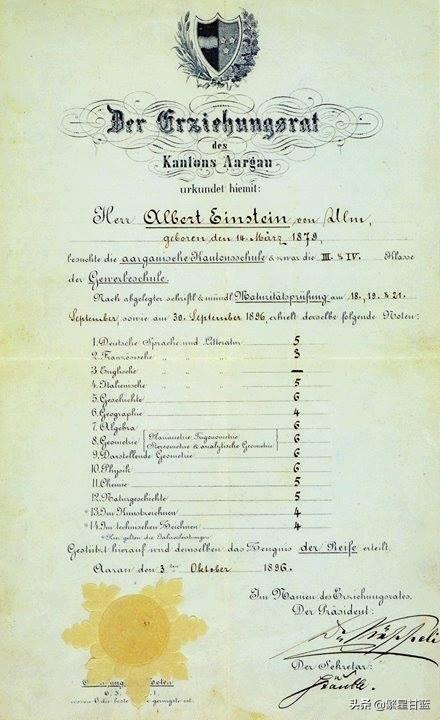 Der Erziehungsrat
des
Kantons Aargau
urkundet hiemit:
Herr Albert Einstein von Ulm,
geboren den 14. März 1879,
besuchte die aargauische Kantonsschule & zwar die III. & IV. Klasse
der Gewerbeschule.
Nach abgelegter schriftl. & mündl. Maturitätsprüfung am 18., 19. & 21.
September, sowie am 30. September 1896, erhielt derselbe folgende Noten:
1. Deutsche Sprache und Litteratur 5
2. Französische " " " 3
3. Englische " " " —
4. Italienische " " " 5
5. Geschichte 6
6. Geographie 4
7. Algebra 6
8. Geometrie (Planimetrie, Trigonometrie, Stereometrie & analytische Geometrie) 6
9. Darstellende Geometrie 6
10. Physik 6
11. Chemie 5
12. Naturgeschichte 5
*13. Im Kunstzeichnen 4
*14. Im technischen Zeichnen 4
*Hier gelten die Jahresleistungen.
Gestützt hierauf wird demselben das Zeugnis der Reife erteilt.
Aarau den 3ten Oktober 1896.
Im Namen des Erziehungsrates,
Der Präsident:
Der Sekretär:
头条 @繁星甘蓝